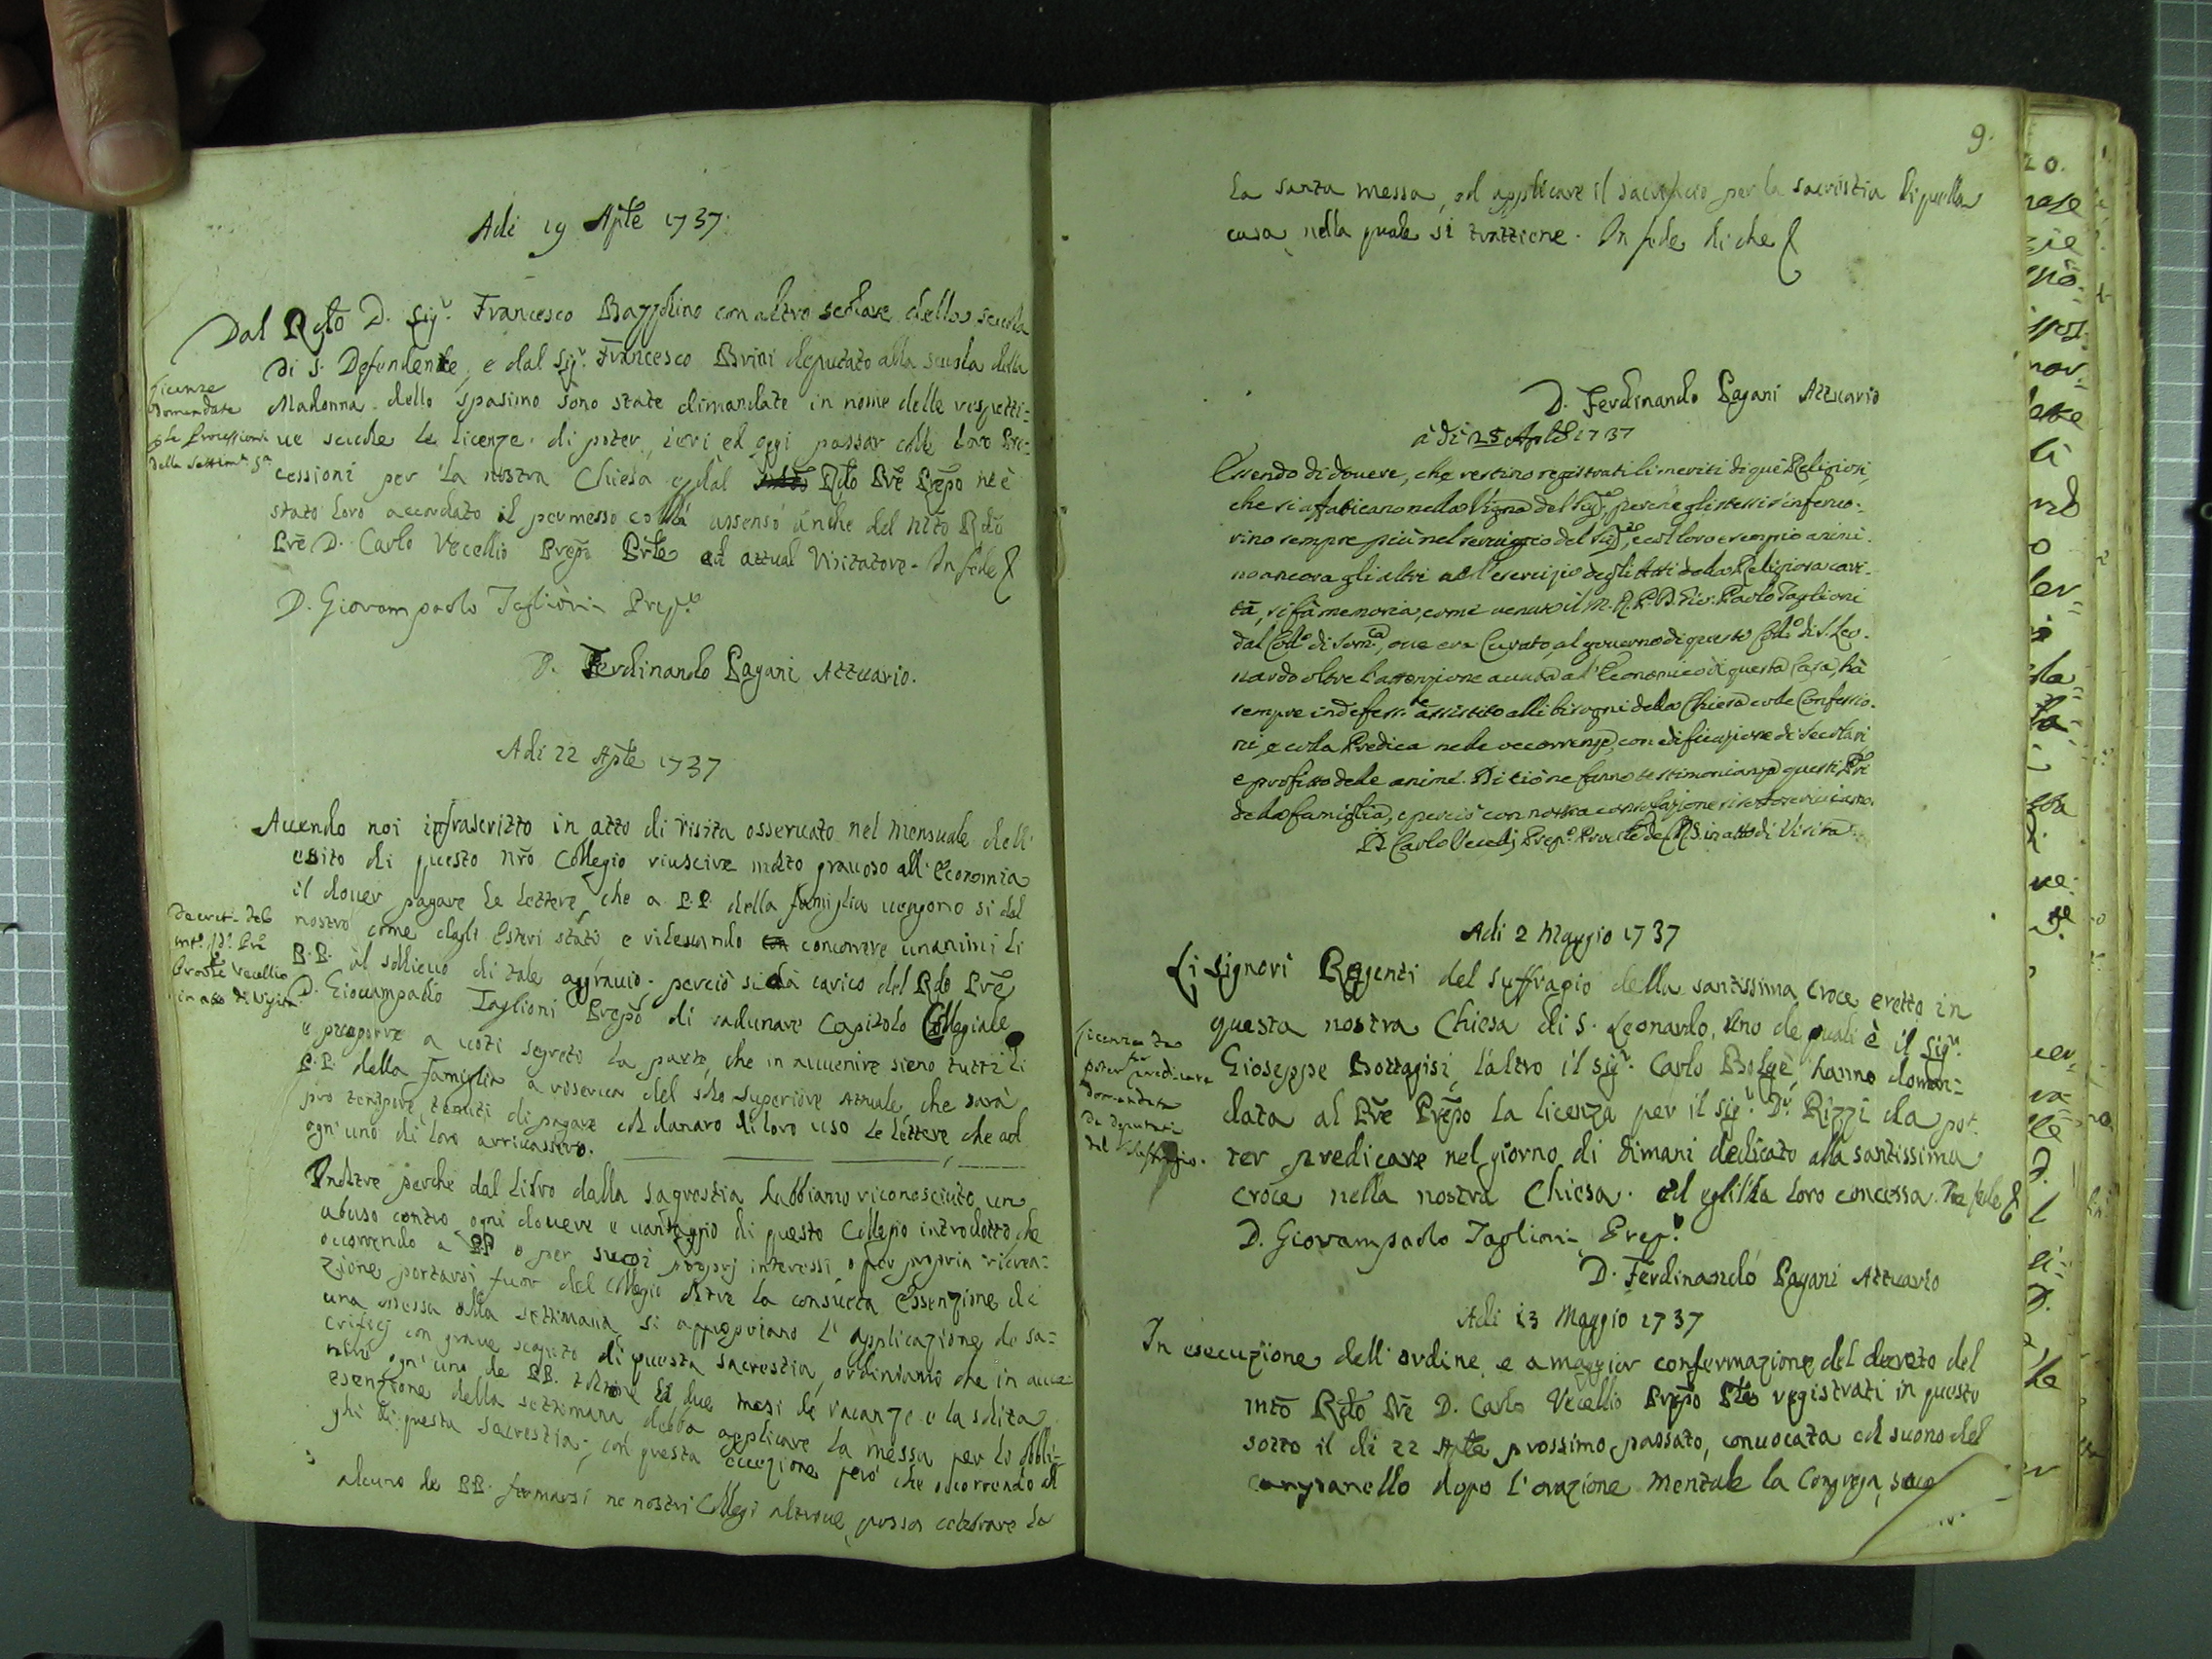 Adi 19 Aple 1737.
Dal Rdo D. Sigr. Francesco Bazzolino con altro scolare della scuola
di S. Defendente, e dal Sigr. Francesco Brini deputato alla scuola della
Madonna dello spasimo sono state dimandate in nome delle respetti-
ue scuole le licenze di poter, ieri ed oggi passar colle loro Pro-
cessioni per la nostra Chiesa e dal Rdo Pre Prepo ne è
stato loro accordato il permesso coll' assenso anche del mto Rdo
Pre D. Carlo Vecellio Prepo Prle ed attual Visitatore. In fede
D. Giovampaolo Taglioni Prepo.
D. Ferdinando Pagani Attuario.
Licenze
domandate
p le Processioni
della Settima. Sa.
Adi 22 Aple 1737
Auendo noi infrascritto in atto di visita osseruato nel mensuale dell'
esito di questo nro Collegio riuscire molto grauoso all' economia
il douer pagare le lettere, che a P.P. della famiglia uengono si dal
nostro come dagli esteri stati e ricusando concorrere unanimi li
P.P. al sollieuo di tale aggrauio. perciò si dà carico del Rdo Pre
D. Giouampaolo Taglioni Prepo di radunare Capitolo Collegiale
e proporre a uoti segreti la parte, che in auuenire sieno tutti li
P.P. della famiglia a riserua del solo Superiore Attuale, che sarà
pro tempore, tenuti di pagare col danaro di loro uso le lettere, che ad
ogn' uno di loro arriuassero.
Decret. del
mto. Rdo. Pre
Proule Vecellio
in atto di Visita
Inoltre perche dal Libro dalla sagrestia habbiamo riconosciuto un
abuso contro ogni douere e uantaggio di questo Collegio introdotto che
occorrendo a PP o per suoi proprj interessi, o per propria ricrea-
zione portarsi fuor del Collegio oltre la consueta essenzione di
una messa alla settimana, si appropriano l' applicazione de sa-
crificj con graue scapito di questa sacrestia, ordiniamo che in auue-
nire ogn' uno de PP. toltone li due mesi di vacanze e la solita
esenzione della settimana debba applicare la messa per li obbli-
ghi di questa sacrestia; con questa eccezione però che occorrendo ad
alcuno de PP. fermarsi ne nostri Collegi altroue, possa celebrare la
9.
la santa messa, ed applicare il sacrificio per la sacristia di quella
casa, nella quale si trattiene. In fede di che
D. Ferdinando Pagani Attuario
à dì 25 Aple 1737
Essendo di douere, che restino registrati li meriti di què Religiosi,
che si affaticano nella Vigna del Sigre, perche gli stessi s'inferuo-
rino sempre più nel seruiggio del Sigre, e col loro esempio anini-
no ancora gli altri all'esercizio degli Atti della Religiosa cari-
tà, si fà memoria, come uenuto il M. R. P. D. Gio: Paolo Taglioni
dal Collo di Soma., oue era Curato al gouerno di questo Collo di S. Leo-
nardo oltre l'attenzione auuta al' Economico di questa Casa, hà
sempre indefesste assistito alli bisogni della Chiesa colle Confessio-
ni, e colla Predica nelle occorrenze, con edificazione di Secolari,
e profitto delle anime. Di ciò ne fanno testimonianza questi Pri
della famiglia, e perciò con nostra consolazione
D. Carlo Vecelj Prepo. Proule de CRS in atto di Visita.
Adi 2 Maggio 1737
Li Signori Regenti del suffragio della santissima Croce eretto in
questa nostra Chiesa di S. Leonardo, uno de quali è il Sigr.
Gioseppe Bottagisi, l'altro il Sigr. Carlo Bolgè, hanno doman-
data al Pre Prepo la licenza per il Sigr. Dr. Rizzi da po-
ter predicare nel giorno di dimani dedicato alla santissima
Croce nella nostra Chiesa. ed egli l'ha loro concessa. In fede
D. Giovampaolo Taglioni Prepo.
D. Ferdinando Pagani Attuario
Licenza di
poter far predicare
domandata
da deputati
del Suffragio.
Adi 13 Maggio 1737
In esecuzione dell' ordine e a maggior confermazione del decreto del
mto Rdo Pre D. Carlo Vecellio Prepo Prle registrati in questo
sotto il di 22 Aple prossimo passato, conuocata col suono del
campanello dopo l'orazione mentale la Congrega,